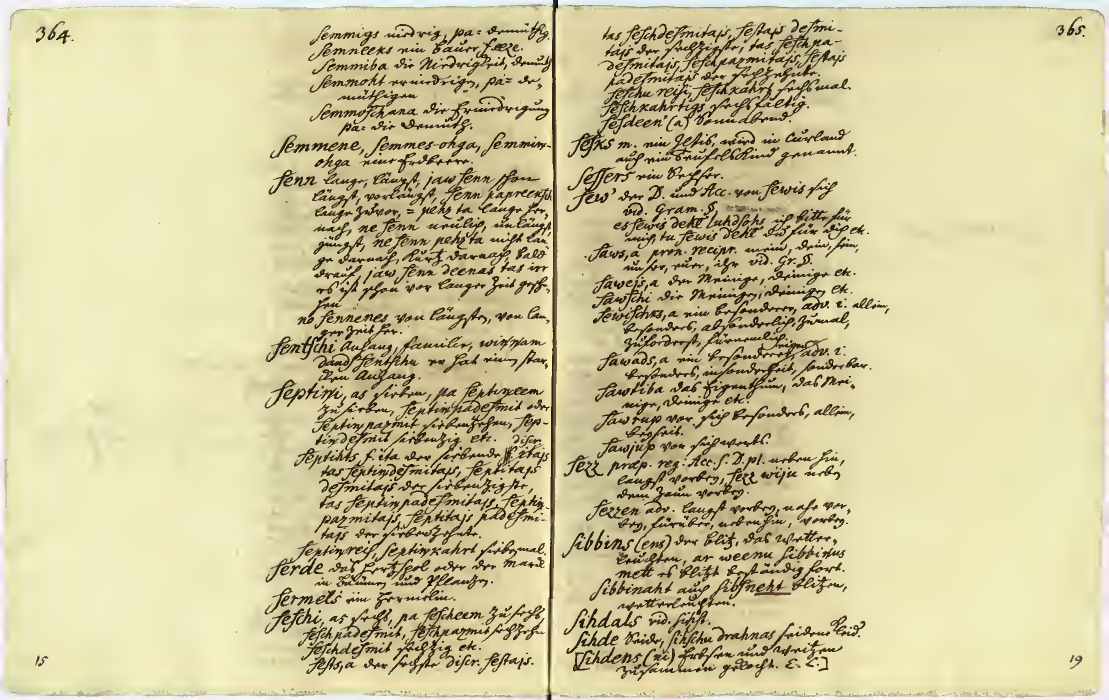 364.
Semmigs niedrig, pa= demüthig.
Semneeks ein Bauer,
Semmiba die Niedrigkeit, demuth
Semmoht erniedrigen, pa= de-
müthigen
Semmoschana die Erniedrigung
pa= die Demuth.
Semmene, Semmes-ohga, Semmin-
ohga eine Erdbeere.
Senn lange, längst, jaw Senn schon
längst, vorlängst, Senn papreensch
lange zuvor, = pehz ta lange her-
nach, ne Senn neulich, unlängst,
jüngst, ne Senn pehz ta nicht lan-
ge darnach, kurtz darnach, bald
drauf, jaw Senn deenas tas irr
es ist schon vor langer Zeit gesche-
hen.
no Sennenes von längsten, von lan-
ger Zeit her.
Sentschi Anhang, familie, wiņņam
daudz Sentschu er hat einen star-
cken Anhang.
Septiņi, as sieben, pa Septiņeem
zu sieben, Septiņpadesmit oder
Septiņpazmit siebenzehen, Sep-
tiņdesmit siebenzig etc.
Septihts f. ita der siebende
tas Septiņdesmitajs, Septitajs
desmitajs der siebenzigste,
tas Septiņpadesmitajs, Septiņ-
pazmitajs, Septitajs padesmi-
tajs der siebenzehnte.
Septiņreis, Septiņkahrt siebenmal.
Serde das Hertzhol oder der Marck
in Bäumen und Pflantzen.
Sermels ein Hermelin.
Seschi, as sechs, pa Secheem zu sechs,
Seschpadesmit, Seschpazmit sechzehn
Seschdesmit sechzig etc.
Sests, a der sechste discr. Sestajs.
15
365.
tas Seschdesmitajs, Sestajs desmi-
tajs der sechzigste, tas Seschpa-
desmitajs, Seschpazmitajs, Sestajs
padesmitajs der sechzehnte.
Seschu reisi, Seschkahrt sechsmal.
Seschkahrtigs sechsfältig.
Sesdeen (a) Sonnabend.
Sesks m. ein Iltis, wird in Curland
auch ein Teufelskind genannt.
Sessers ein
Sew' der D. und Acc. von Sewis sich
vid. Gram. §.
es Sewis deht luhdsohs ich bitte für
mich, tu Sewis deht dis für dich etc.
Saws, a pron. recipr. mein, dein, sein,
unser, euer, ihr vid. Gr. §.
Sawejs, a der Meinige, deinige etc.
Sawschi die Meinigen, deinigen etc.
Sewischks, a ein besonderer, adv. i. allein,
besonders, absonderlich, zumal,
zuforderst, fürnemlich.
Sawads, a ein besonderer, eigner, adv. i.
besonders, insonderheit, sonderbar.
Sawtiba das Eigenthum, das Mei-
nige, deinige etc.
Sawrup vor sich besonders, allein,
beyseit.
Sawjup vor sich werts.
Sezz præp. reg. Acc. S. D. pl. neben hin,
längst vorbey, Sezz wiju neben
dem Zaun vorbey.
Sezzen adv. längst vorbey, nahe vor-
bey, fürüber, neben hin, vorbey.
Sibbins (ens) der Blitz, das Wetter-
leuchten, ar weenu Sibbinus
mett es blitzt beständig fort.
Sibbinaht auch Sibsneht blitzen,
wetterleuchten.
Sihdals vid. Sihst.
Sihde Seide, Sihschu drahnas seidene Kleid.
[Sihdens (ņi) Erbsen und Weitzen
zusammen gekocht. E. L.]
19